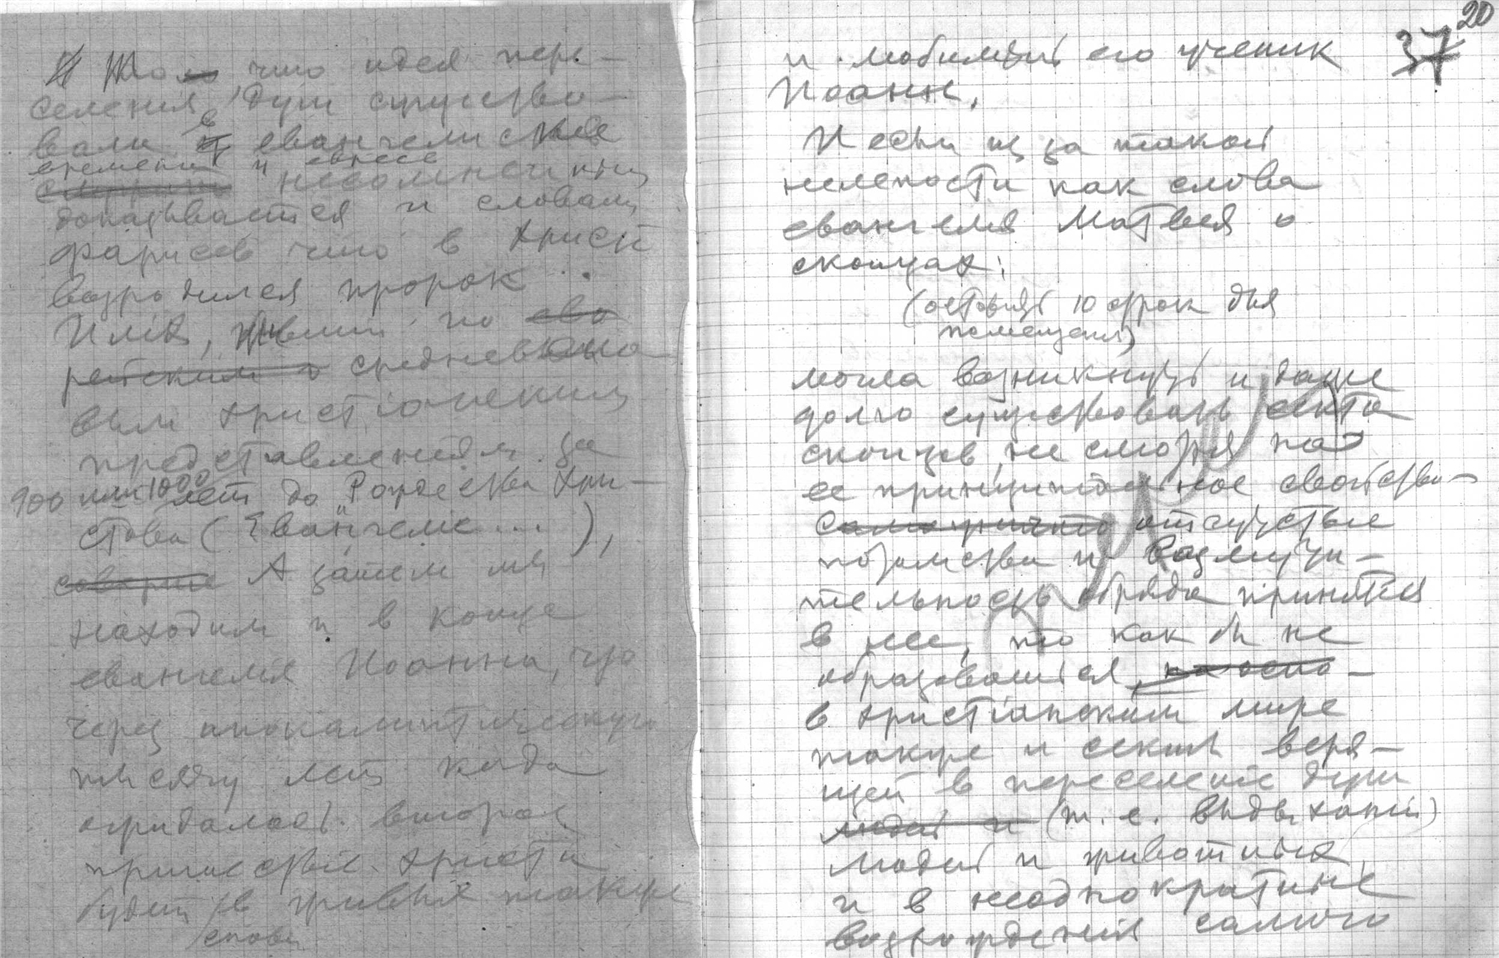 То что идея пере-
селения душ существо-
вали в евангельские
времена и
несомненно
доказывается и словами
фарисеев что в Христе
возродился пророк
Илия, живший по
средневеко-
вым христіанским
представлениям за
900 или 1000 лет до Рождества Хри-
стова (Евангеліе ... ),
А затем мы
находим и в конце
евангелія Иоанна, что
через апокалиптическую
тысячу лет когда
ожидалось второе
пришествіе Христа
будет в живых также
снова
20
37
и любимый его ученик
Иоанн.
И если из за такой
нелепости как слова
евангелія Матвея о
скопцах:
(оставить 10 строк для
могла возникнуть и даже
долго существовать секта
скопцов, не смотря на
ее принципіальное свойство-
отсутствіе
потомства и возмути-
тельность обряда принятія
в нее, то как бы не
образоваться,
в христіанском мире
также и секты веря-
щей в переселеніе душ
(т. е.
людей и животных,
и в неоднократные
возрожденія самого